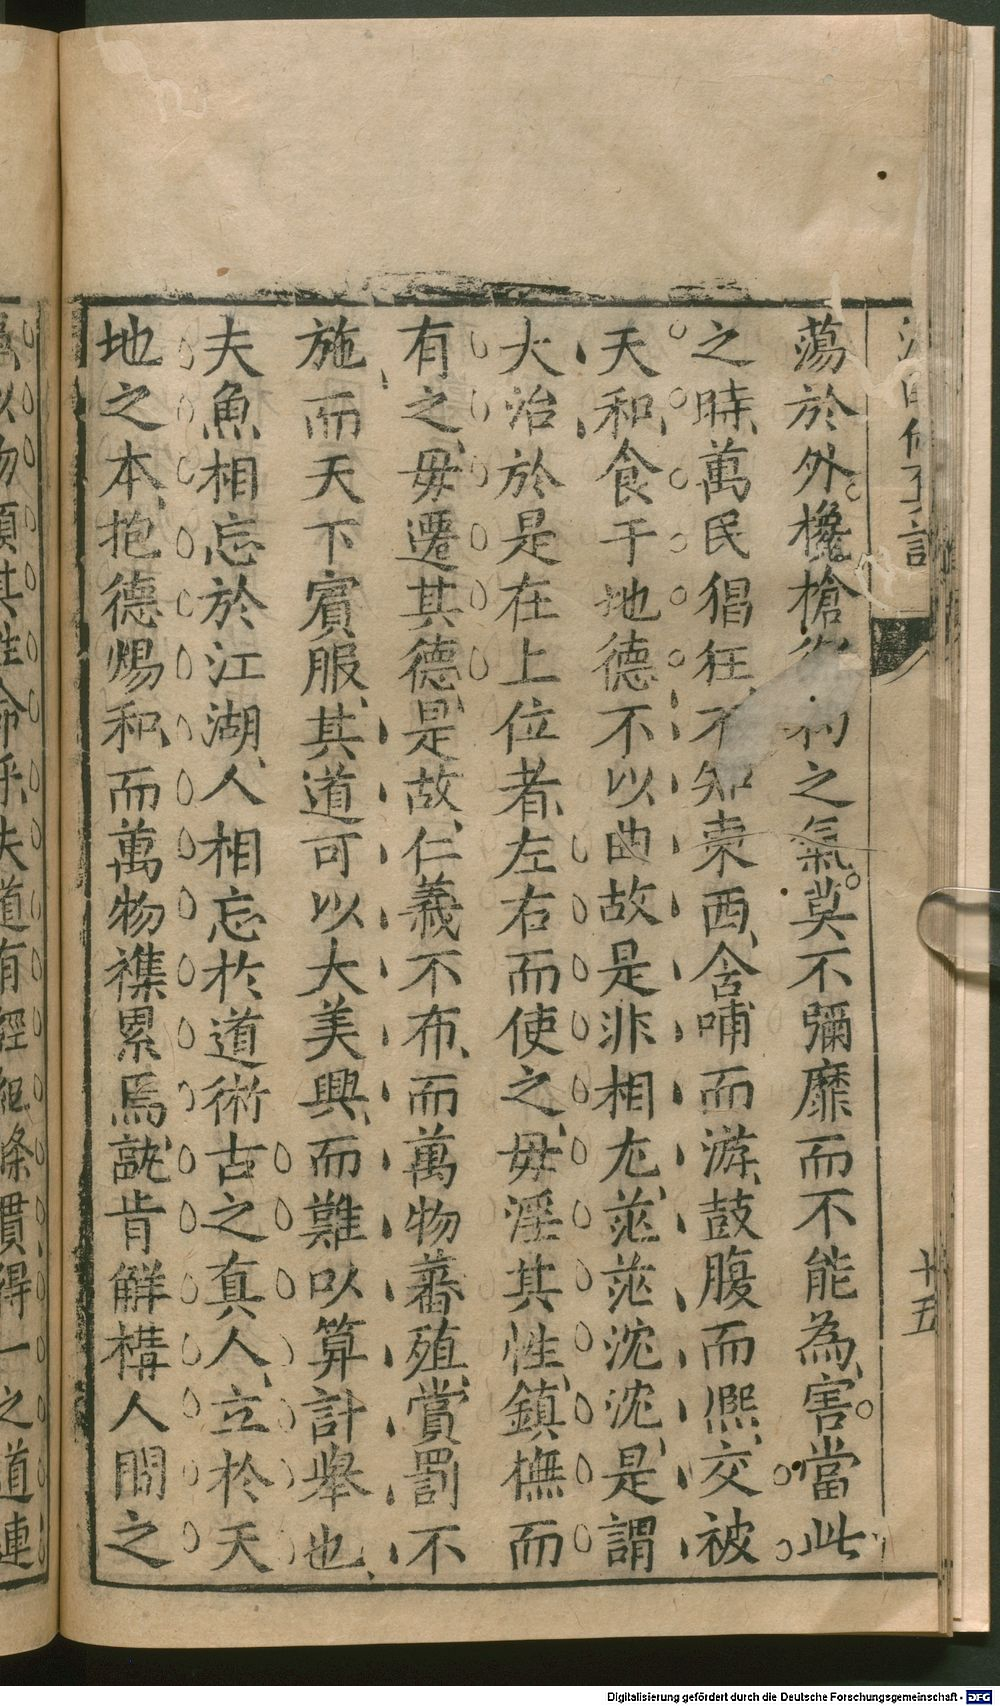 蕩於外攙槍衡杓之氣莫不彌靡而不能為害當此
之時萬民猖狂不知東西含哺而游鼓腹而熙交被
天和食于地德不以曲故是非相尤茫茫沈沈是謂
大治於是在上位者左右而使之毋淫其性鎮撫而
有之毋遷其德是故仁義不布而萬物蕃殖賞罰不
施而天下賓服其道可以大美興而難以算計舉也
夫魚相忘於江湖人相忘於道術古之真人立於天
地之本抱德煬和而萬物襍累焉孰肯解構人間之
物煩其性命乎夫道有經紀條貫得一之道連
十五
Digitalisierung gefördert durch die Deutsche Forschungsgemeinschaft - DFG